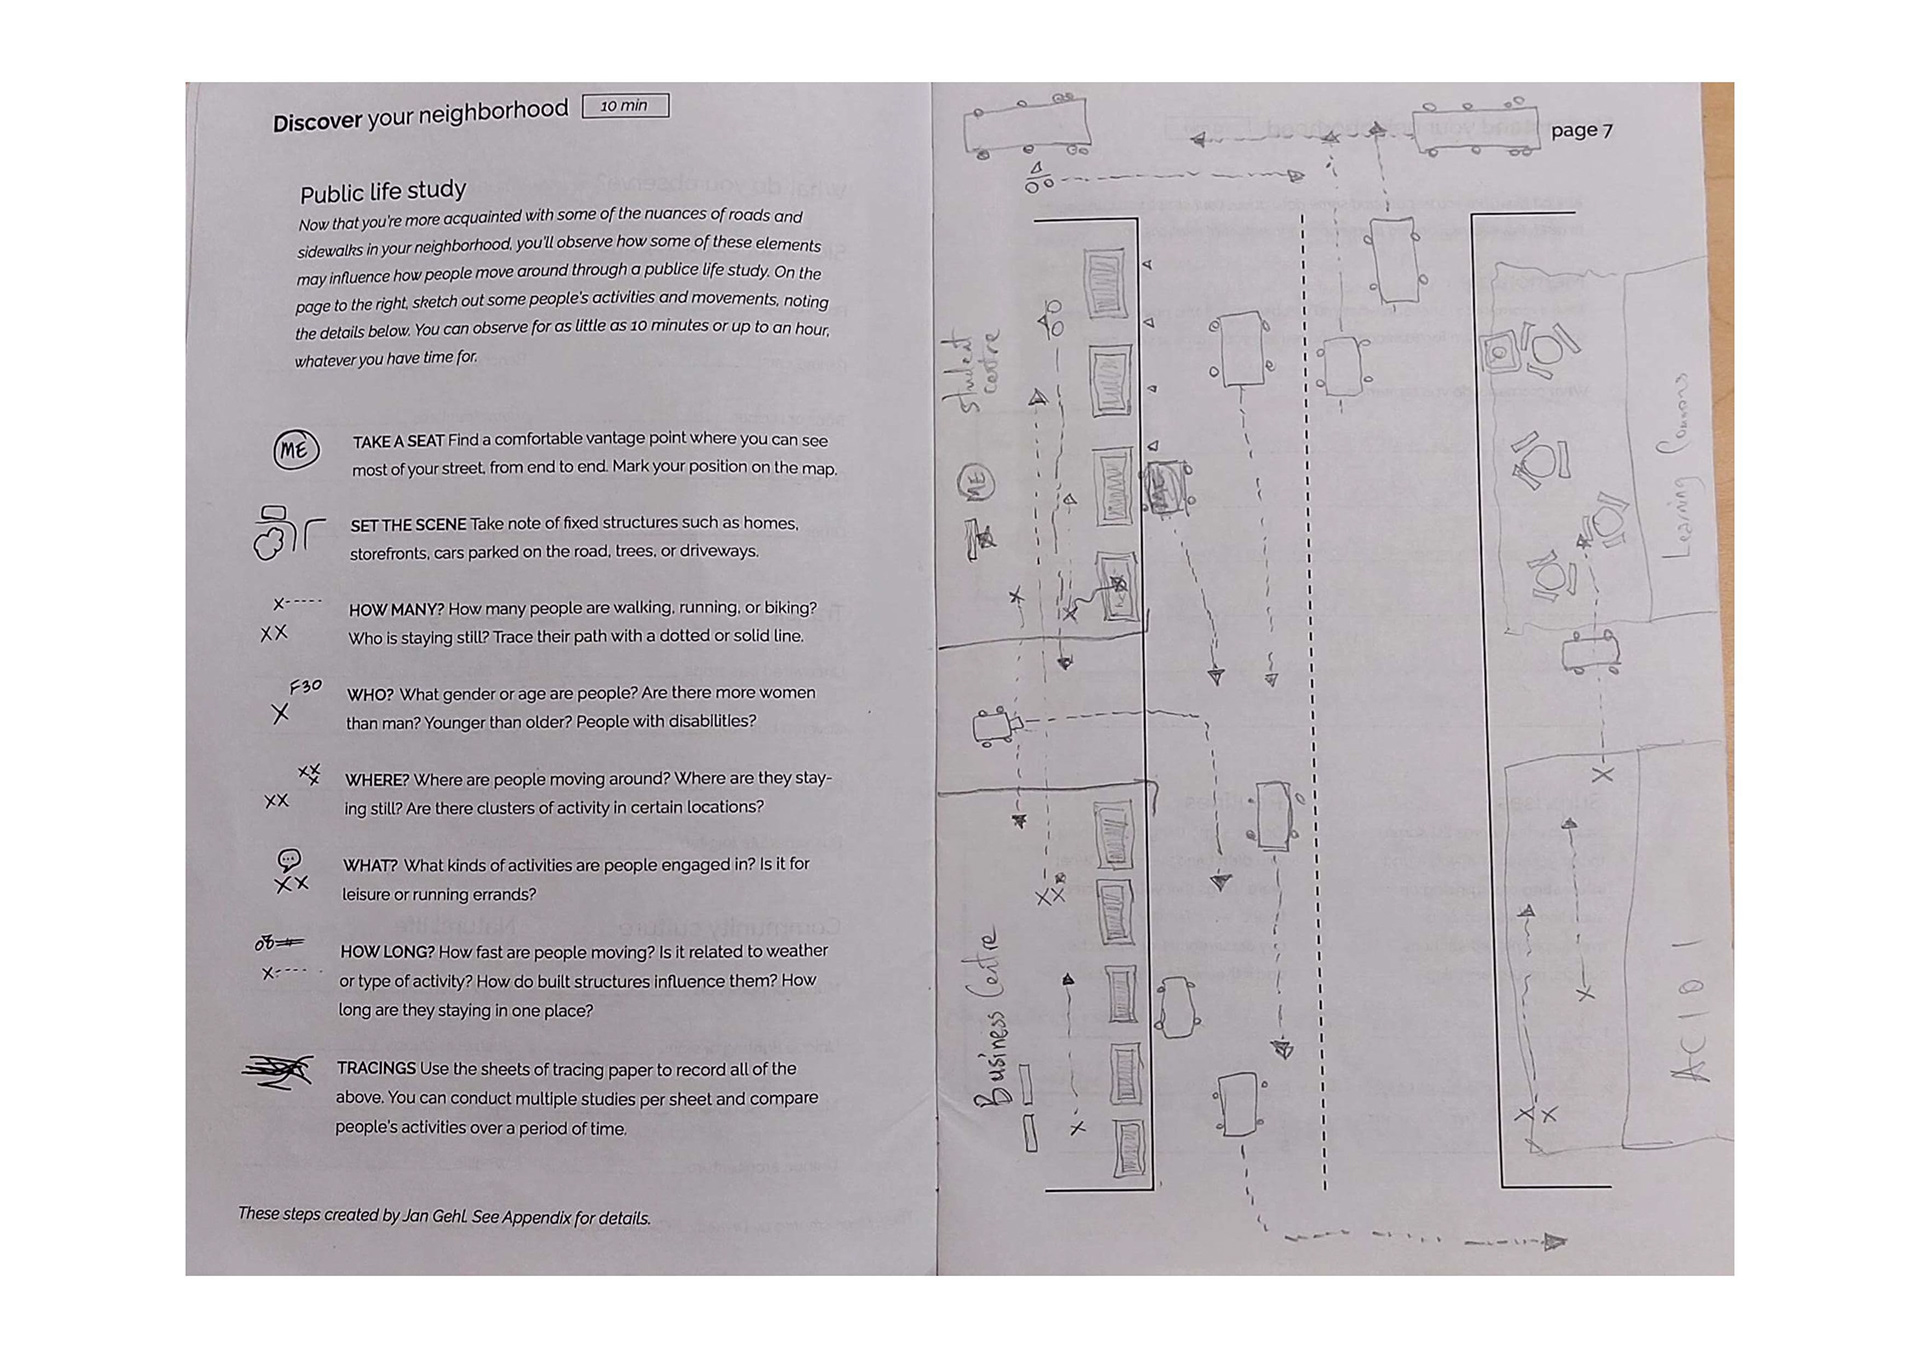 Discover your neighborhood 10 min
Public life study
Now that you're more acquainted with some of the nuances of roads and
sidewalks in your neighborhood, you'll observe how some of these elements
may influence how people move around through a publice life study. On the
page to the right, sketch out some people's activities and movements, noting
the details below. You can observe for as little as 10 minutes or up to an hour,
whatever you have time for.
ME
TAKE A SEAT Find a comfortable vantage point where you can see
most of your street, from end to end. Mark your position on the map.
SET THE SCENE Take note of fixed structures such as homes,
storefronts, cars parked on the road, trees, or driveways.
HOW MANY? How many people are walking, running, or biking?
Who is staying still? Trace their path with a dotted or solid line.
F30
WHO? What gender or age are people? Are there more women
than man? Younger than older? People with disabilities?
WHERE? Where are people moving around? Where are they stay-
ing still? Are there clusters of activity in certain locations?
WHAT? What kinds of activities are people engaged in? Is it for
leisure or running errands?
HOW LONG? How fast are people moving? Is it related to weather
or type of activity? How do built structures influence them? How
long are they staying in one place?
TRACINGS Use the sheets of tracing paper to record all of the
above. You can conduct multiple studies per sheet and compare
people's activities over a period of time.
These steps created by Jan Gehl. See Appendix for details.
page 7
Student
centre
ME
Business Centre
Learning Commons
AC101